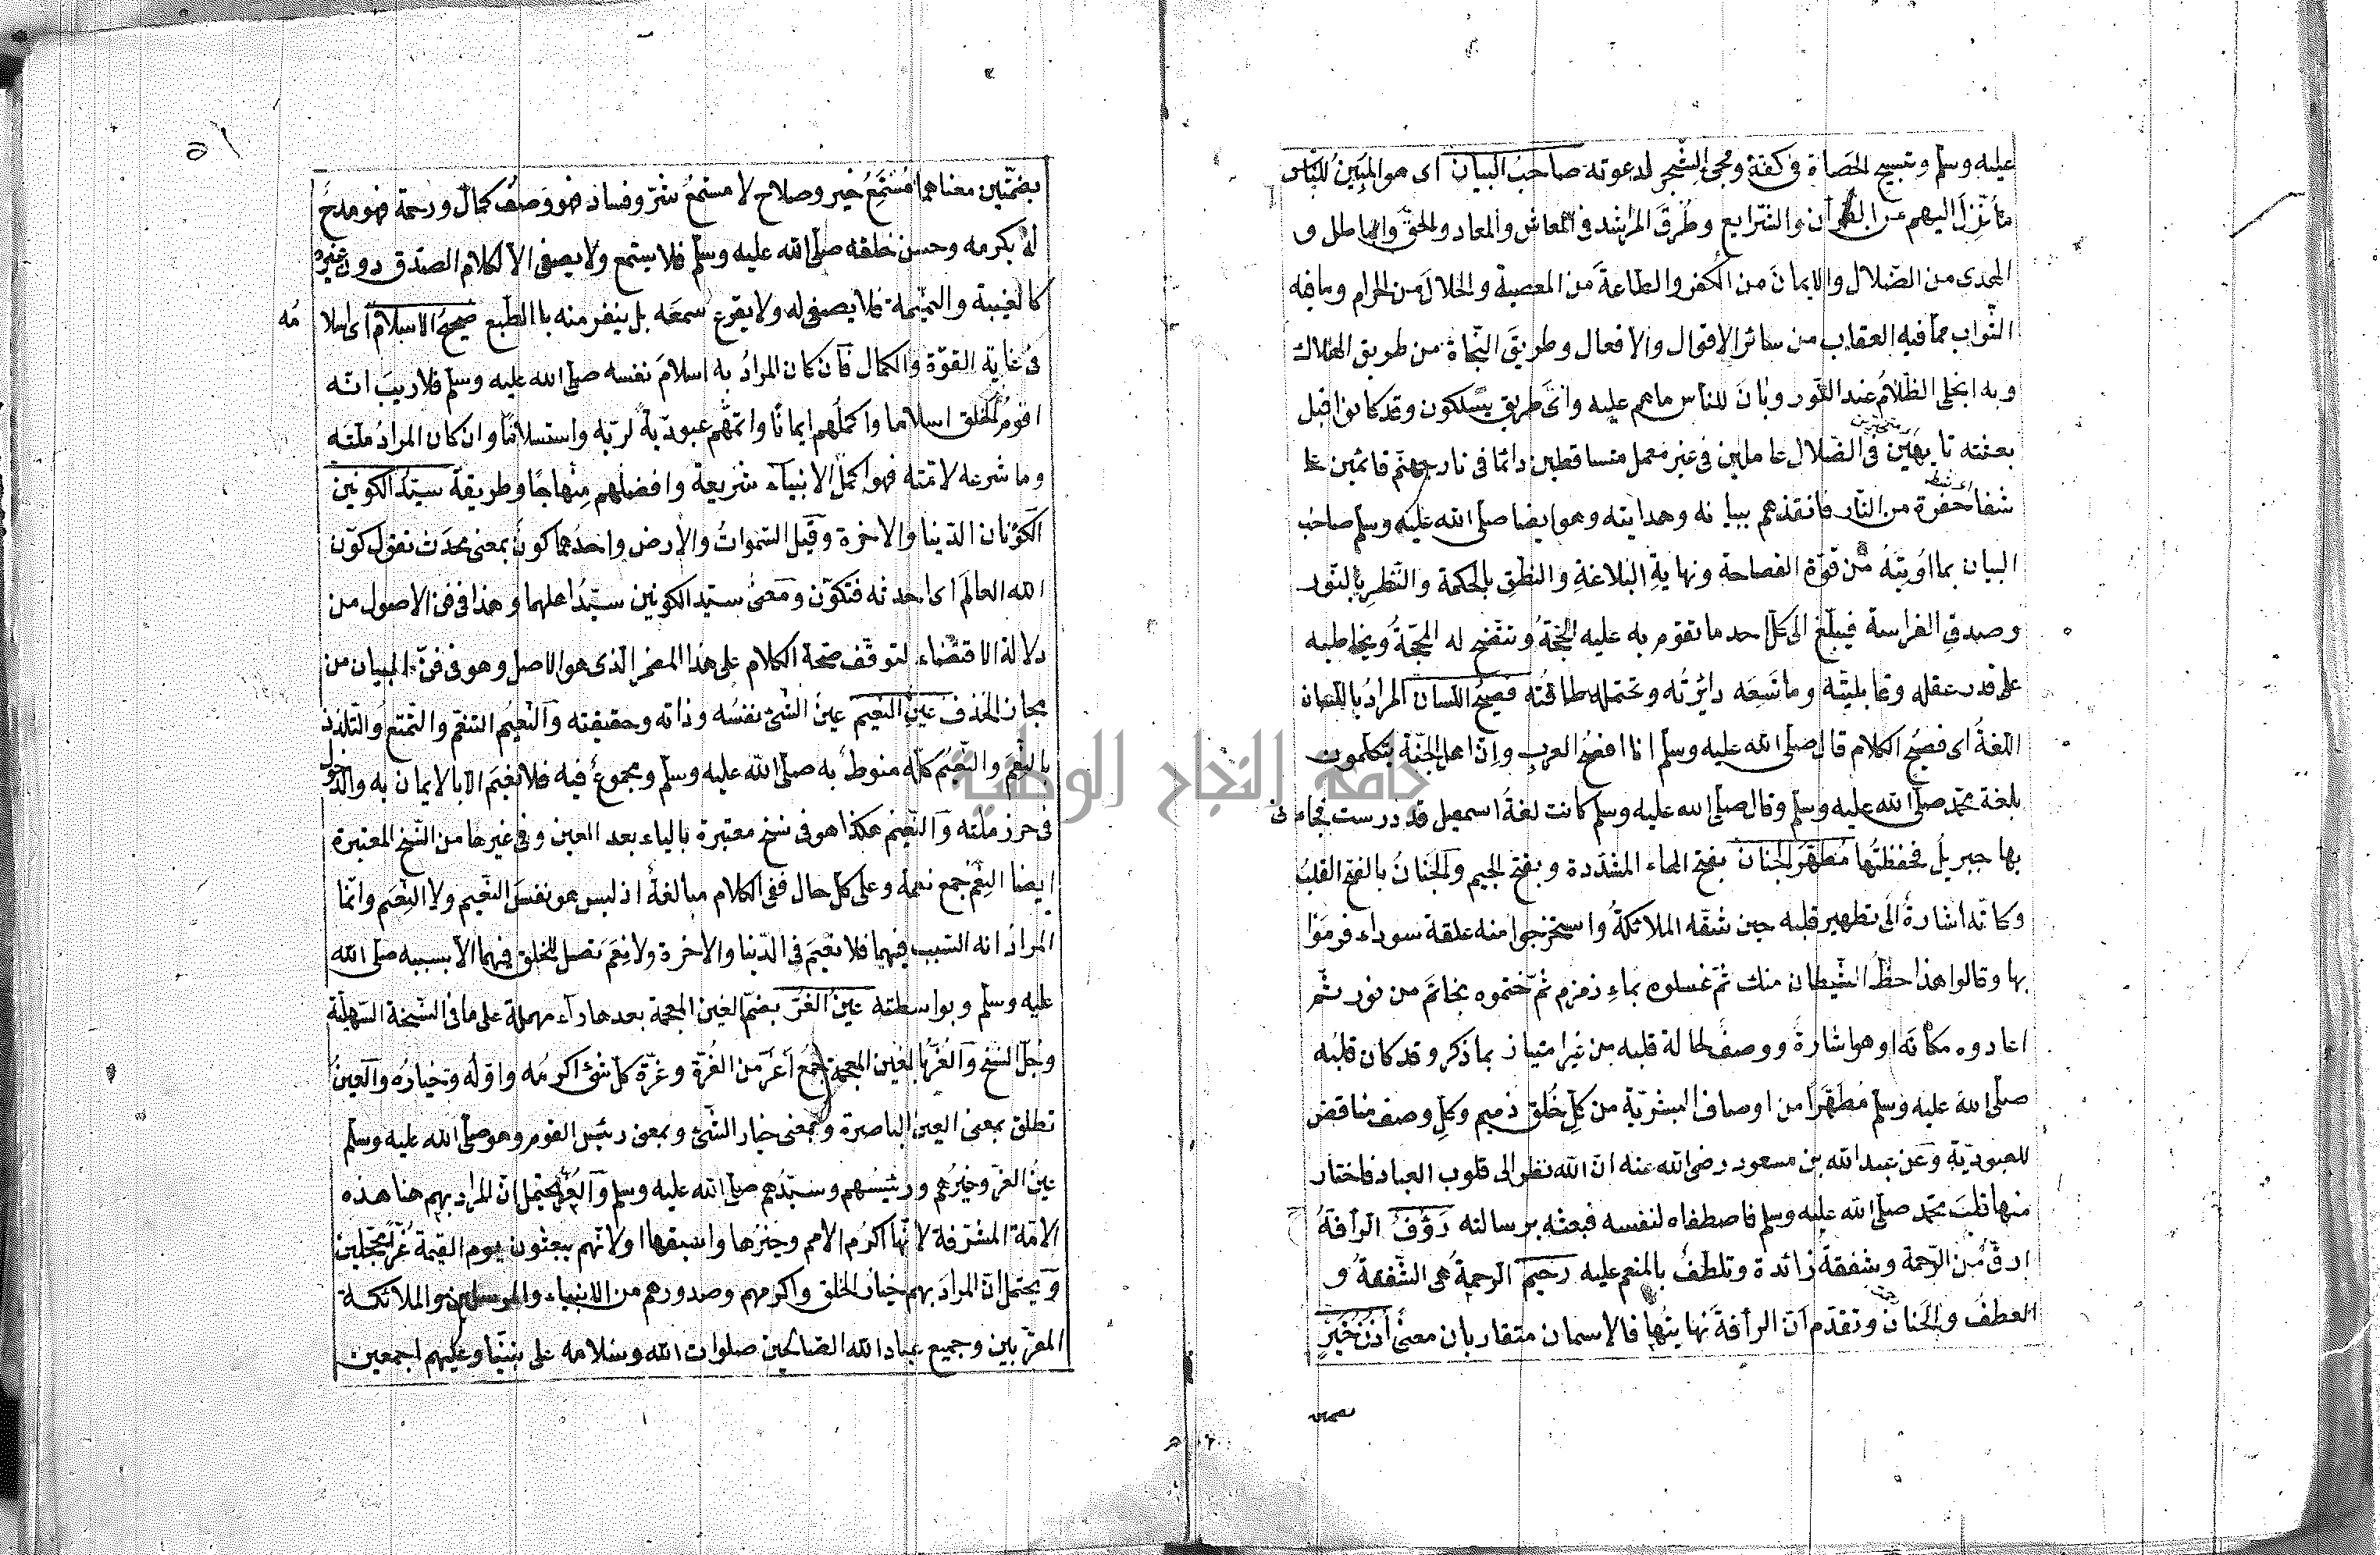 عليه وسلم وتسبيح الحصاة في كفه ومجئ الشجر لدعوته صاحب البيان اى هو المبين للناس
ما نزل اليهم من القرآن والشرايع وطرق المراشد في المعاش والمعاد والحق والباطل و
الهدى من الضلال والايمان من الكفر والطاعة من المعصية والحلال من الحرام وما فيه
الثواب مما فيه العقاب من سائر الاقوال والافعال وطريق النجاة من طريق الهلاك
وبه انجلى الظلام عند النور وبان للناس ما هم عليه واى طريق يسلكون وقد كانوا قبل
متحيرين
بعثته تايهين في الضلال عاملين في غير معمل متساقطين دائما في نار جهنم قائمين على
شفا حفرة من النار فانقذهم ببيانه وهدايته وهو ايضا صلى الله عليه وسلم صاحب
البيان بما اوتيه من قوة الفصاحة ونهاية البلاغة والنطق بالحكمة والنظر بالنور
وصدق الفراسة فيبلغ الى كل احد ما تقوم به عليه الحجة وتتضح له المحجة ويخاطبه
على قدر عقله وقابليته وما تسعه دائرته وتحتمله طاقته فصيح اللسان المراد باللسان
اللغة اى فصيح الكلام قال صلى الله عليه وسلم انا افصح العرب وان اهل الجنة يتكلمون
بلغة محمد صلى الله عليه وسلم وقال صلى الله عليه وسلم كانت لغة اسمعيل قد درست فجاءنى
بها جبريل فحفظتها مطهر الجنان بفتح الهاء المشددة وبفتح الجيم والجنان بالفتح القلب
وكانه اشارة الى تطهير قلبه حين شقه الملائكة واستخرجوا منه علقة سوداء فرموا
بها وقالوا هذا حظ الشيطان منك ثم غسلوه بماء زمزم ثم ختموه بخاتم من نور ثم
اعادوه مكانه او هو اشارة ووصف لحالة قلبه من غير امتياز بما ذكر وقد كان قلبه
صلى الله عليه وسلم مطهرا من اوصاف البشرية من كل خلق ذميم وكل وصف مناقض
للعبودية وعن عبد الله بن مسعود رضى الله عنه ان الله نظر الى قلوب العباد فاختار
منها قلب محمد صلى الله عليه وسلم فاصطفاه لنفسه فبعثه برسالته رؤف الرأفة
ارق من الرحمة وشفقة زائدة وتلطف بالمنعم عليه رحيم الرحمة هى الشفقة و
العطف والحنان وتقدم ان الرأفة نهايتها فالاسمان متقاربان معنى أذن خير
بضمتين
بضمتين معناهما مستمع خير وصلاح لا مستمع شر وفساد فهو وصف كمال ورحمة فهو مدح
له بكرمه وحسن خلقه صلى الله عليه وسلم فلا يستمع ولا يصغى الا لكلام الصدق دون غيره
كالغيبة والنميمة فلا يصغى له ولا يقرع سمعه بل ينفر منه بالطبع صحيح الاسلام اى اسلا مه
فى غاية القوة والكمال فان كان المراد به اسلام نفسه صلى الله عليه وسلم فلا ريب انه
اقوم الخلق اسلاما واكملهم ايمانا واتمهم عبودية لربه واستسلاما وان كان المراد ملته
وما شرعه لامته فهو اكمل الانبياء شريعة وافضلهم منهاجا وطريقة سيد الكونين
الكونان الدنيا والاخرة وقيل السموات والارض واحدهما كون بمعنى محدث تقول كون
الله العالم اى احدثه فتكون ومعنى سيد الكونين سيد اهلهما وهذا فى فن الاصول من
دلالة الاقتضاء لتوقف صحة الكلام على هذا المضمر الذى هو الاصل وهو فى فن البيان من
مجاز الحذف عين النعيم عين الشئ نفسه وذاته وحقيقته والنعيم التنعم والتمتع والتلذذ
بالنعم والنعيم كله منوط به صلى الله عليه وسلم ومجموع فيه فلا نعيم الا بالايمان به والدخول
فى حرز ملته والنعيم هكذا هو فى نسخ معتبرة بالياء بعد العين وفى غيرها من النسخ المعتبرة
ايضا النعم جمع نعمة وعلى كل حال ففى الكلام مبالغة اذ ليس هو نفس النعيم ولا النعم وانما
المراد انه السبب فيهما فلا نعيم فى الدنيا والاخرة ولا نعم تصل للخلق فيهما الا بسببه صلى الله
عليه وسلم وبواسطته عين الغر بضم الغين المعجمة بعدها راء مهملة على ما فى النسخة السهلية
وجل النسخ والغر بالغين المعجمة جمع أغر من الغرة وغرة كل شئ اكرمه واوله وخياره والعين
تطلق بمعنى العين الباصرة وبمعنى خيار الشئ وبمعنى رئيس القوم وهو صلى الله عليه وسلم
عين الغر وخيرهم ورئيسهم وسيدهم صلى الله عليه وسلم والغر يحتمل ان المراد بهم هنا هذه
الامة المشرفة لانها اكرم الامم وخيرها واسبقها او لانهم يبعثون يوم القيمة غرا محجلين
ويحتمل ان المراد بهم خيار الخلق واكرمهم وصدورهم من الانبياء والمرسلين والملائكة
المقربين وجميع عباد الله الصالحين صلوات الله وسلامه على نبينا وعليهم اجمعين
جامعة النجاح الوطنية